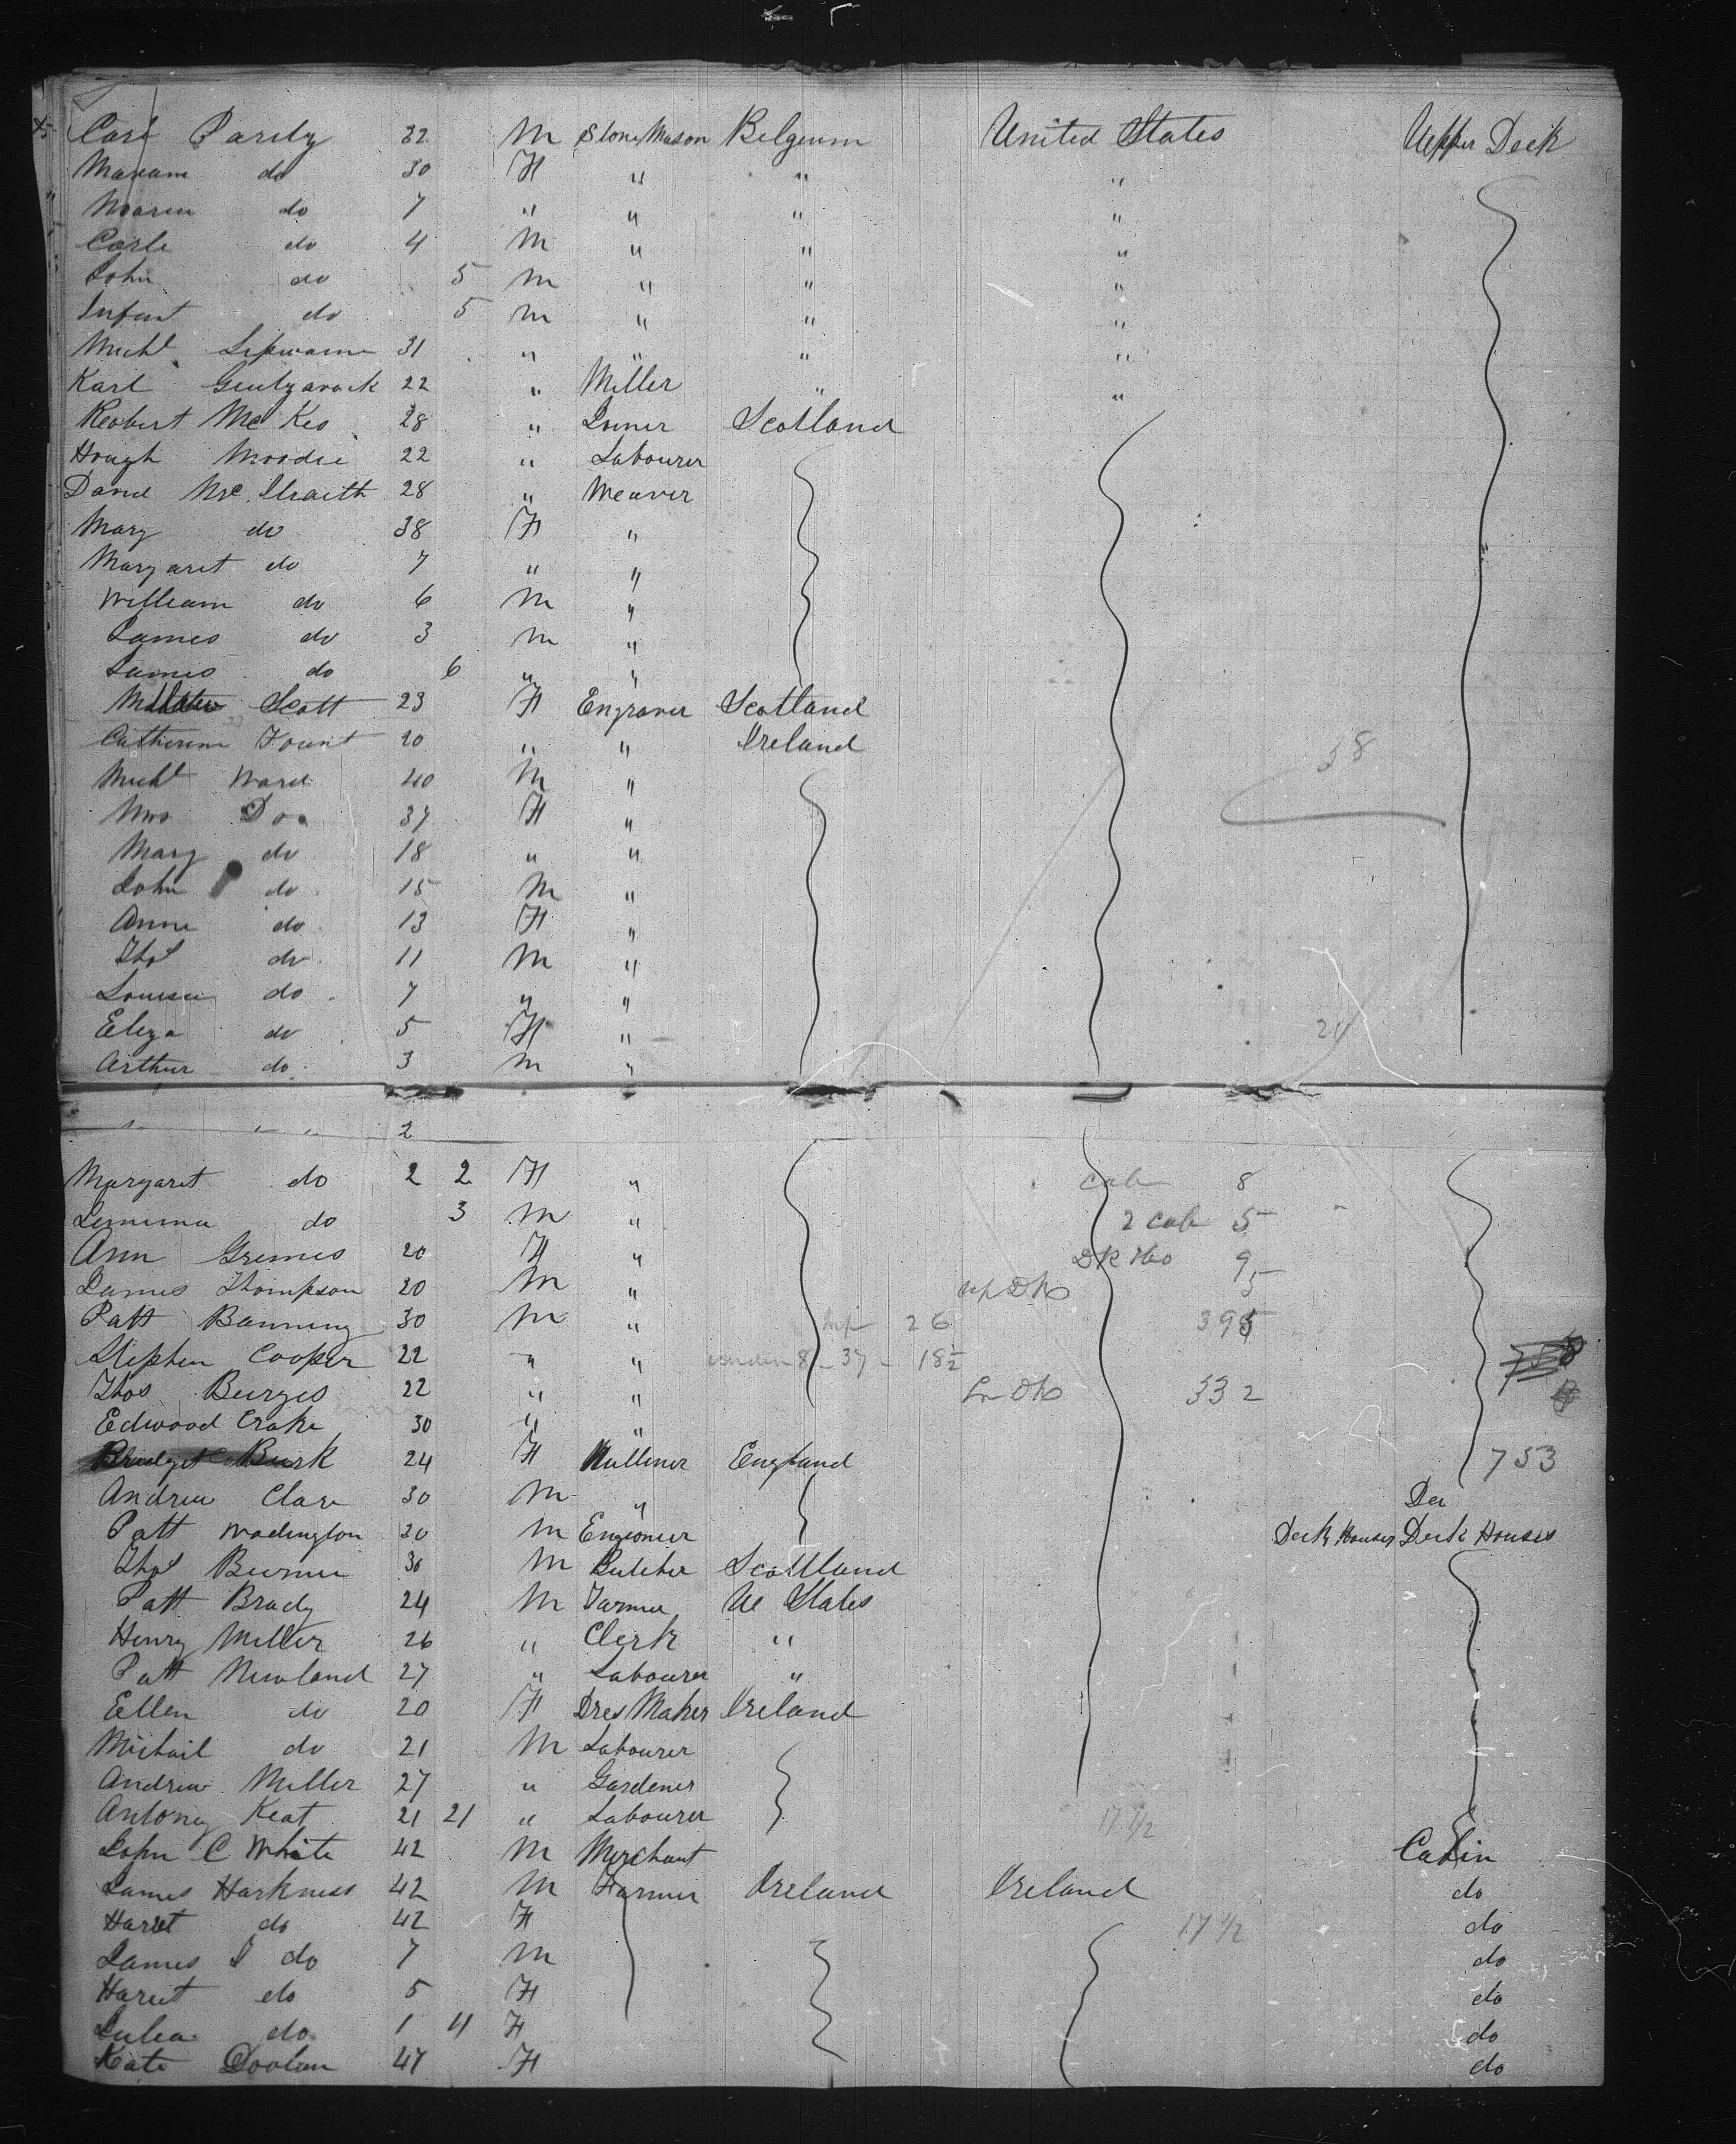 Carl Parily 32 M Stone Mason Belgeum United States Uepper Deck
Mariam do 30 F " " "
Maria do 7 " " " "
Carle do 4 M " " "
John do 5 M " " "
Infant do 5 m " " "
Michl 31 " " " "
Karl 22 " Miller " "
Reobert McKeo 28 " Scotland
Hough Moodie 22 " Labourer
David Mc. Ilraith 28 " Weaver
Mary do 38 F "
Margaret do 7 " "
William do 6 M "
James do 3 m "
James do 6 " "
Scott 23 F Engraver Scotland
Catherine 20 " " Ireland
Michl Ward 40 M "
Mrs Do 37 F "
Mary do 18 " "
John do 15 M "
Anne do 13 F "
Thos do 11 M "
Louisa do 7 " "
Eliza do 5 F "
Arthur do 3 m "
38
2
Margaret do 2 2 F " cab 8
Jemima do 3 M " 2 cab 5
Ann Gremes 20 F " Dk Ho 9
James Thompson 20 M " up Dk 5
Patt Banning 30 M " 26 395
Stephen Cooper 22 " " 8 - 37 - 18½
Thos Burges 22 " " Lr Dk 332
Edwood Crake 30 " "
Bridget Burk 24 F Milliner England 753
Andrew Clare 30 M " De
Patt Wadington 20 M Engioneer Deck Houses Deck Houses
Thos Burnie 30 M Butcher Scottland
Patt Brady 24 M Farmer Ue States
Henry Miller 26 " Clerk "
Patt Newland 27 " Labourer "
Ellen do 20 F Dres Maker Ireland
Michail do 21 M Labourer
Andrew Miller 27 " Gardener
Antoney Keat 21 21 " Labourer 17 1/2
John C White 42 M Merchant Cabin
James Harkness 42 M Farmer Ireland Ireland do
Hariet do 42 F 17 1/2 do
James J do 7 M do
Hariet do 5 F do
Julia do 1 4 F do
Kate Doolan 47 F do